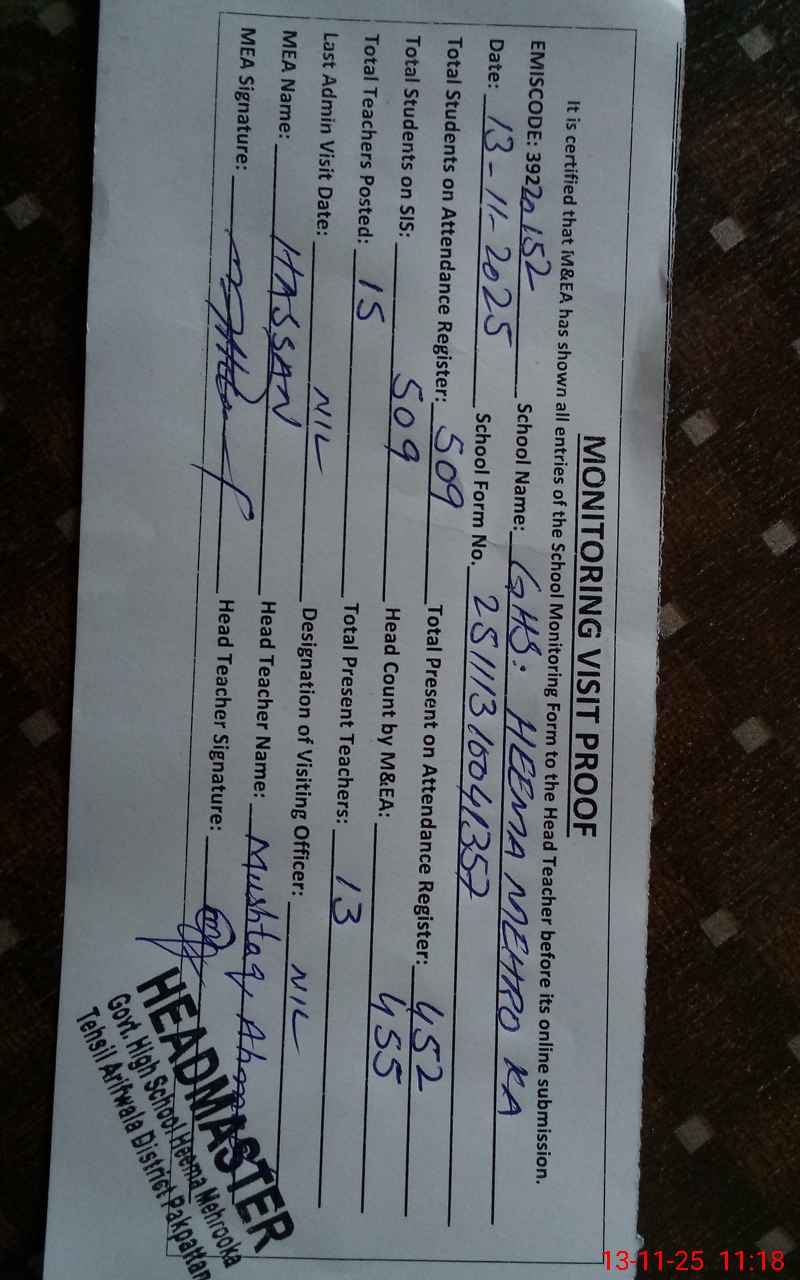 MONITORING VISIT PROOF
It is certified that M&EA has shown all entries of the School Monitoring Form to the Head Teacher before its online submission.
EMISCODE: 39220152 School Name: GHS: HEEMA MEHRO KA
Date: 13-11-2025 School Form No. 25111310041357
Total Students on Attendance Register: 509 Total Present on Attendance Register: 452
Total Students on SIS: 509 Head Count by M&EA: 455
Total Teachers Posted: 15 Total Present Teachers: 13
Last Admin Visit Date: NIL Designation of Visiting Officer: NIL
MEA Name: HASSAN Head Teacher Name: Mushtaq
MEA Signature: Head Teacher Signature:
HEADMASTER
Govt. High School Heema Mehrooka
Tehsil Arifwala District Pakpattan
13-11-25 11:18